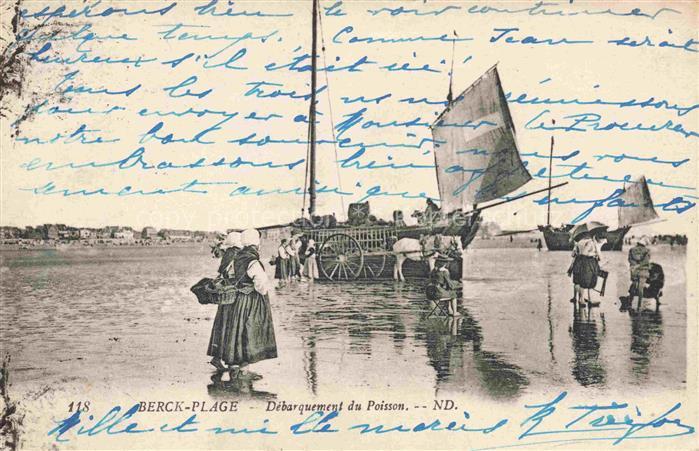 espérons bien le voir continuer
quelque temps. Comme Jean serait
heureux s'il était ici!
tous les trois nous réunissons
pour envoyer à Monsieur le Procureur
notre bon souvenir nous vous
embrassons bien affectueu
sement ainsi que enfants
118 BERCK-PLAGE - Débarquement du Poisson. -- ND.
Mille et mille mercis